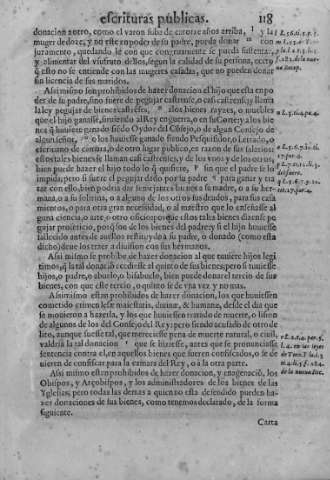 escrituras publicas. 118
donacion a otro, como el varon sube de catorze años arriba, y la
muger de doze, y no estè en poder de su padre, pueda donar con
juramento, quedando le con que congruamente se pueda sustentar,
y alimentar del vsufruto dellos, segun la calidad de su persona, excepto
q̃ esto no se entiende con las mugeres casadas, que no pueden donar
sin licencia de sus maridos.
Assi mismo son prohibidos de hazer donacion el hijo que esta en po-
der de su padre, sino fuere de pegujar castrense, o casi castrense, y llama
la ley pegujar de bienes castrenses, a los bienes rayzes, o muebles
que el hijo ganasse, siruiendo al Rey en guerra, o en su Corte, y a los bie
nes q̃ huuiere ganado siẽdo Oydor del Cõsejo, o de algun Consejo de
algun señor, o los huuiesse ganado siendo Pesquisidor, o Letrado, o
escriuano de camara, o de otro lugar publico, en razon de sus salarios:
estos tales bienes se llaman casi castrenses, y de los vnos y de los otros,
bien puede hazer el hijo todo lo q̃ quisiere, sin que el padre se lo
impida, pero si fuere el pegujar dado por su padre para ganar y tra
tar con ello, bien podria dar semejantes bienes a su madre, o a su her-
mana, o a su sobrina, o a alguno de los otros sus deudos, para sus casa
mientos, o para otra gran necessidad, o al maestro que lo enseñasse al-
guna ciencia, o arte, o otro oficio: porque estos tales bienes dizense pe
gujar profecticio, porq̃ son de los bienes del padre: y si el hijo huuiesse
fallecido antes de auellos restituydo a su padre, o donado (como esta
dicho) deue los traer a diuision con sus hermanos.
Assi mismo se prohibe de hazer donacion al que tuuiere hijos legi
timos, q̃ la tal donaciõ excediesse el quinto de sus bienes, pero si tuuiesse
hijos, o padre, o abuelo, o bisabuelo, bien puede donar el tercio de sus
bienes, con que este tercio, o quinto se de vna vez y no mas.
Assi mismo estan prohibidos de hazer donacion, los que huuiessen
cometido crimen læse maiestatis, diuinæ, & humanæ, desde el dia que
se mouieron a hazerla, y los que huuiessen tratado de muerte, o lision
de algunos de los del Consejo del Rey: pero siendo acusado de otro de
lito, aunque fuesse tal, que mereciesse pena de muerte natural, o ciuil,
valdria la tal donacion que se hiziesse, antes que se pronunciasse
sentencia contra el, en aquellos bienes que fueren confiscados, o se de
uieren de confiscar para la camara del Rey, o à la otra parte.
Assi mismo estan prohibidos de hazer donacion, y enagenaciõ, los
Obispos, y Arçobispos, y los administradores de los bienes de las
Yglesias, pero todas las demas a quien no esta defendido pueden ha-
zer donaciones de sus bienes, como tenemos declarado, de la forma
siguiente.
Carta